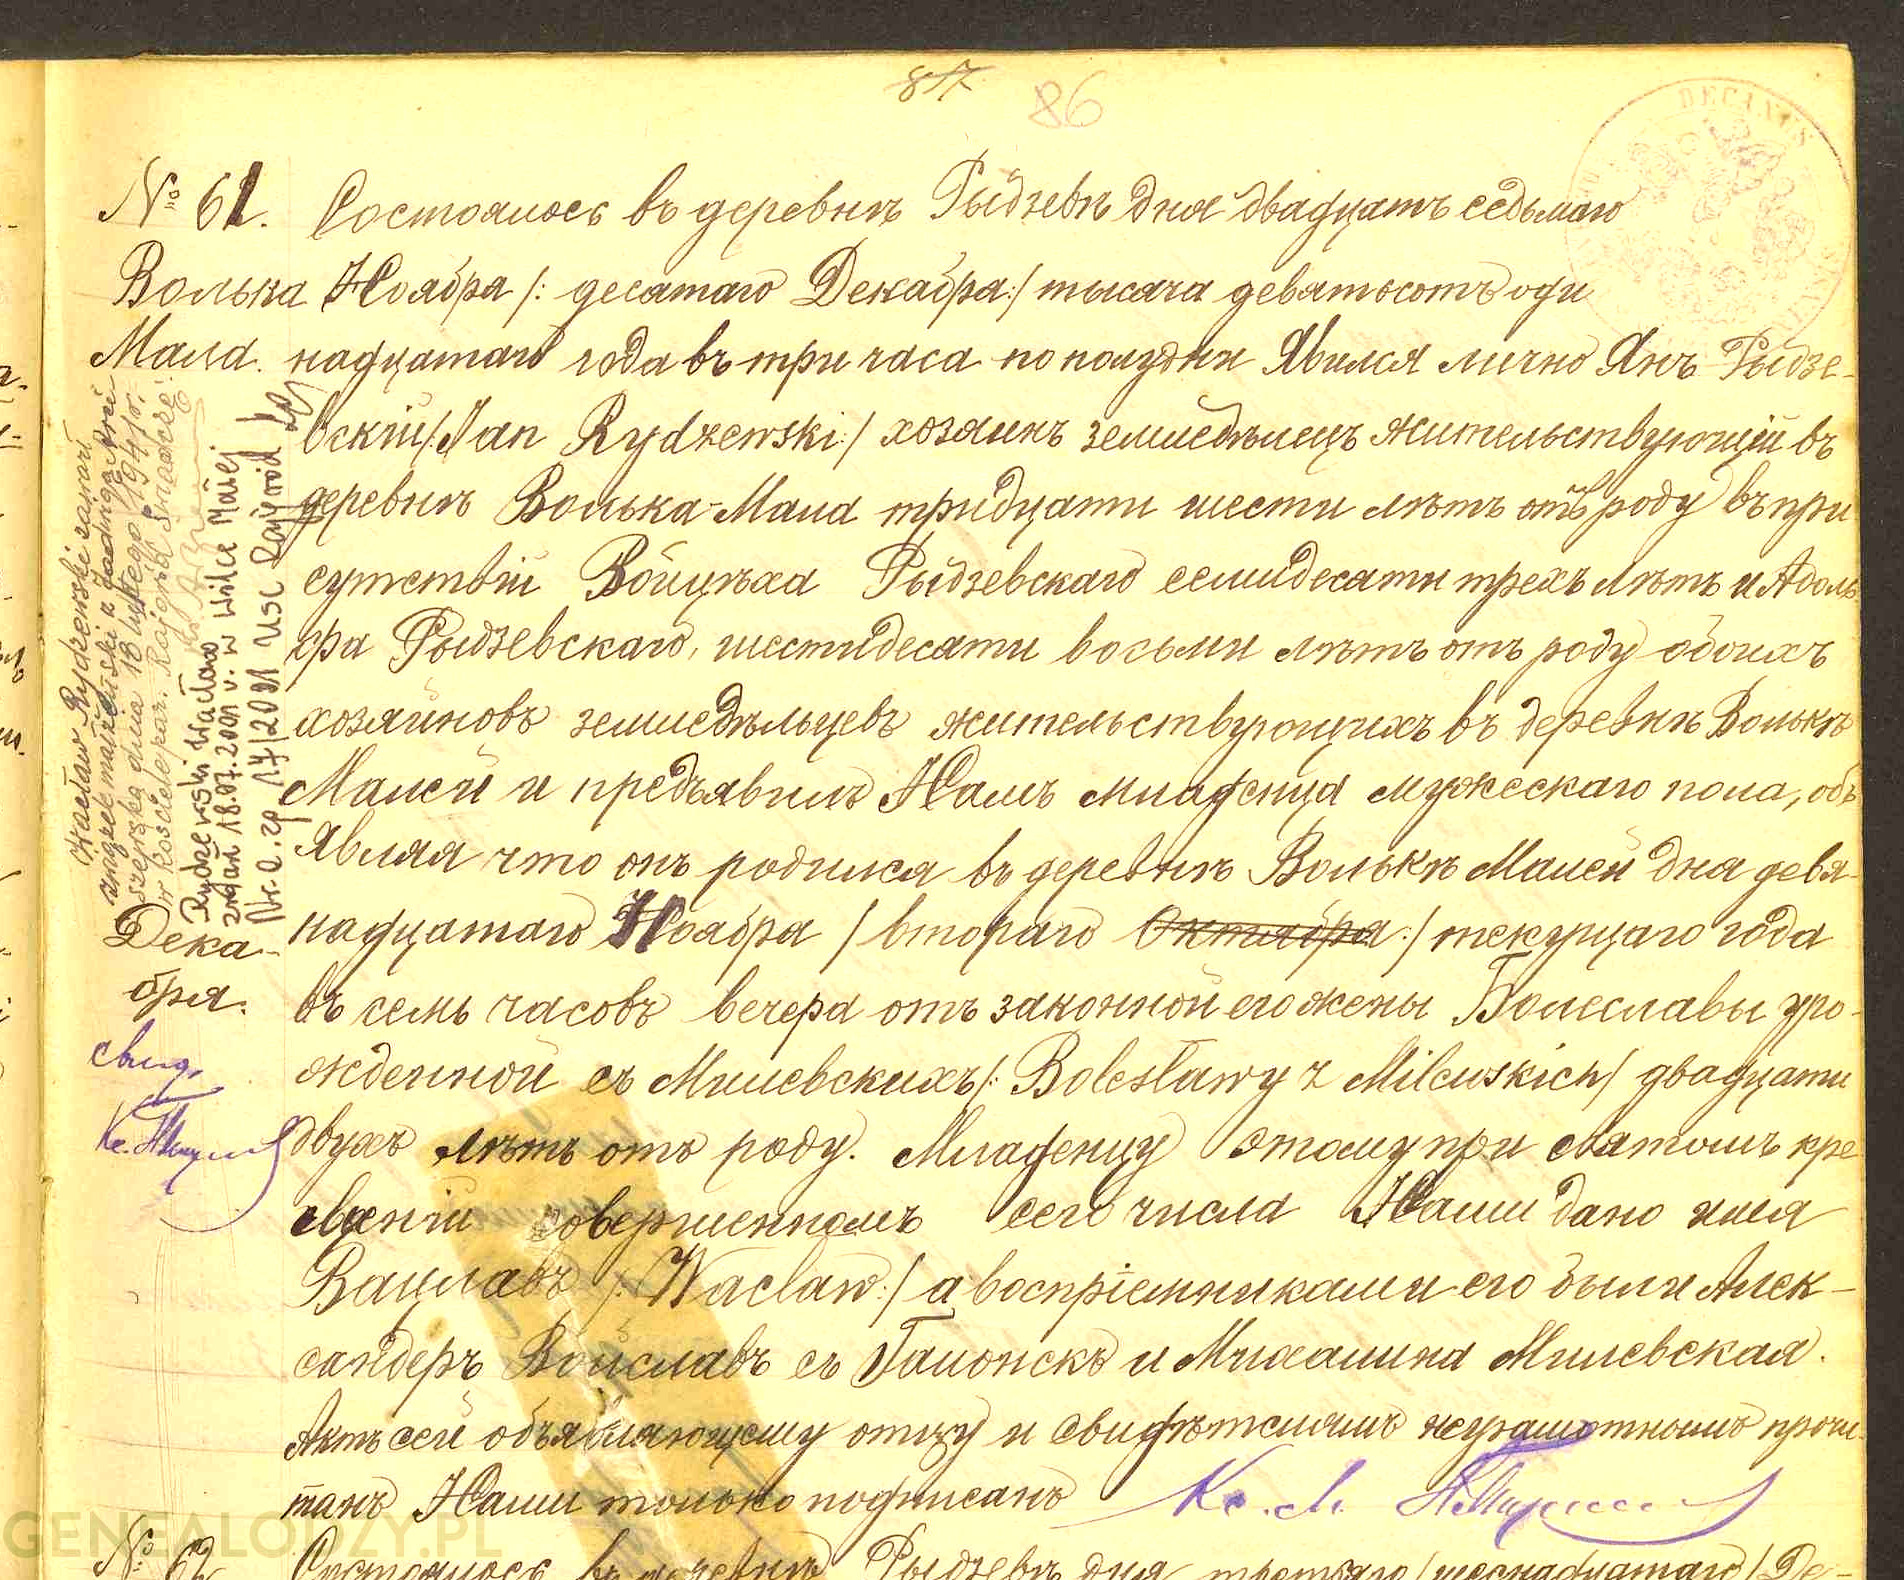 817
86
DECANUS
№ 61. Состоялось въ деревнѣ Рыдзевѣ дня двадцать седьмаго
Волька Ноября /: десятаго Декабря :/ тысяча девятьсотъ оди
Мала. надцатаго года въ три часа по полудни Явился лично Янъ Рыдзе-
вскій /: Jan Rydzewski :/ хозяинъ земледѣлецъ жительствующій въ
деревнѣ Волька-Мала тридцати шести лѣтъ отъ роду въ при
сутствіи Войцѣха Рыдзевскаго семидесяти трехъ лѣтъ и Адоль-
фа Рыдзевскаго, шестидесяти восьми лѣтъ отъ роду обоихъ
хозяиновъ земледѣльцевъ жительствующихъ въ деревнѣ Волькѣ
Малей и предъявилъ Намъ младенца мужескаго пола, объ
являя что онъ родился въ деревнѣ Волькѣ Малей дня девя-
надцатаго Ноября / втораго Октября :/ текущаго года
въ семь часовъ вечера отъ законной его жены Болеславы уро-
жденной съ Милевскихъ /: Bolesławy z Milewskich / двадцати
двухъ лѣтъ отъ роду. Младенцу этому при святомъ кре
щеніи совершенномъ сего числа Нами дано имя
Вацлавъ /: Wacław :/ а воспріемниками его были Алек-
сандеръ Войславъ съ Галонскъ и Михалина Милевская.
Актъ сей объявляющему отцу и свидѣтелямъ неграмотнымъ прочи-
танъ Нами только подписанъ Кс. М.
Wacław Rydzewski zawarł
związek małżeński z Jadwigą
dnia 18 lutego 1941 r.
w kościele paraf. Rajgród
Rydzewski Wacław
zmarł 18.07.2001 r. w Wólce Małej
Nr a. zg 17/2001 USC Rajgród
Дека-
бря.
свид.
Кс.
№ 62 Состоялось въ деревнѣ Рыдзевѣ дня третьяго / шеснадцатаго / Де-
GENEALODZY.PL